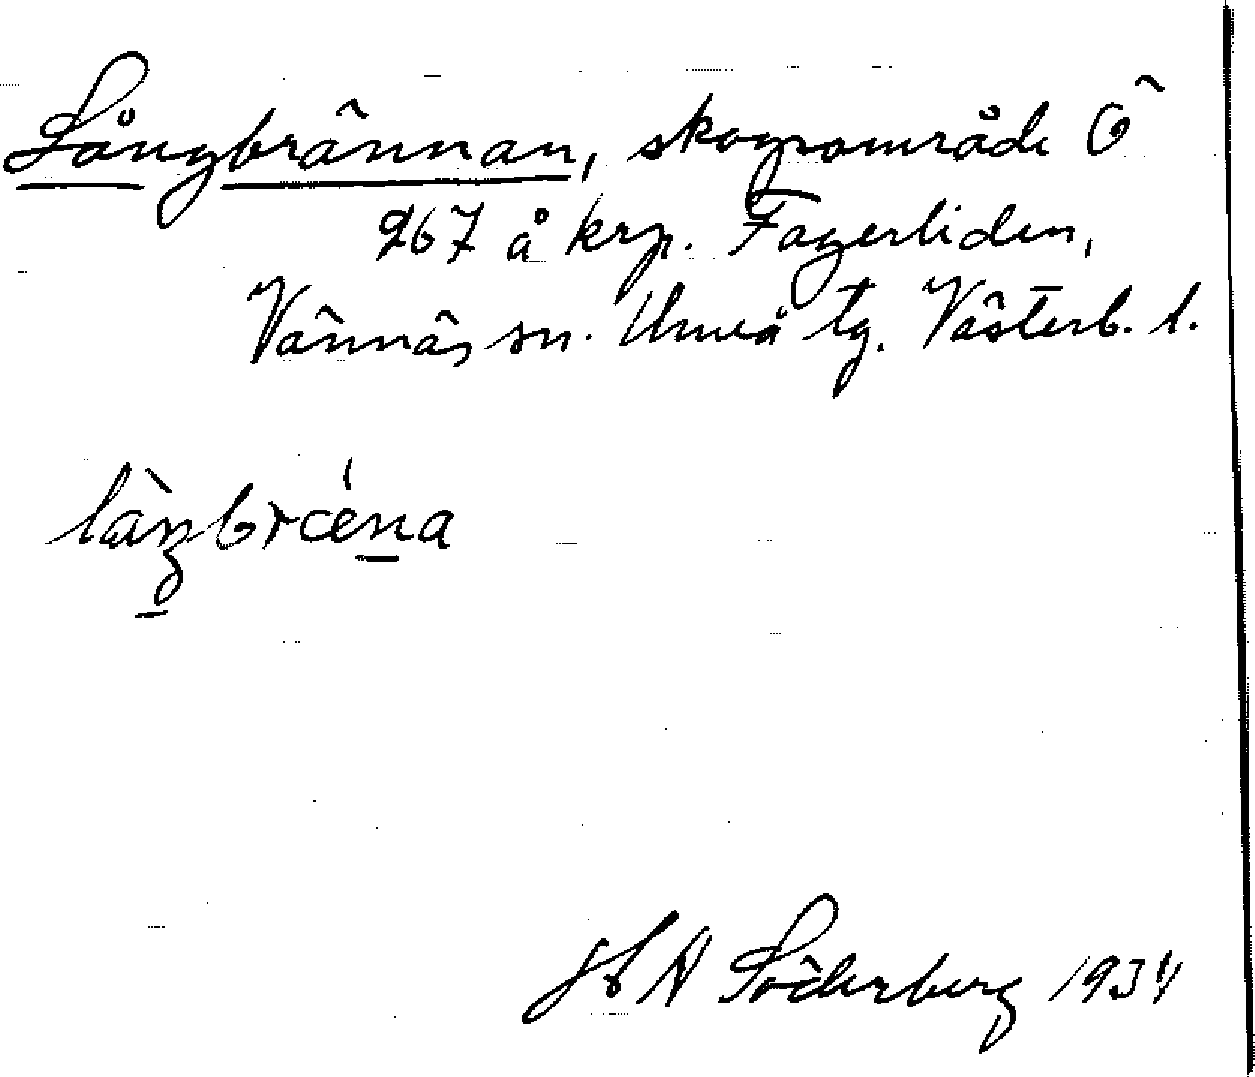 Långbrännan, skogsområde Ö
267 å krp. Fagerliden,
Vännäs sn. Umeå tg. Västerb. l.
H A Söderberg 1934